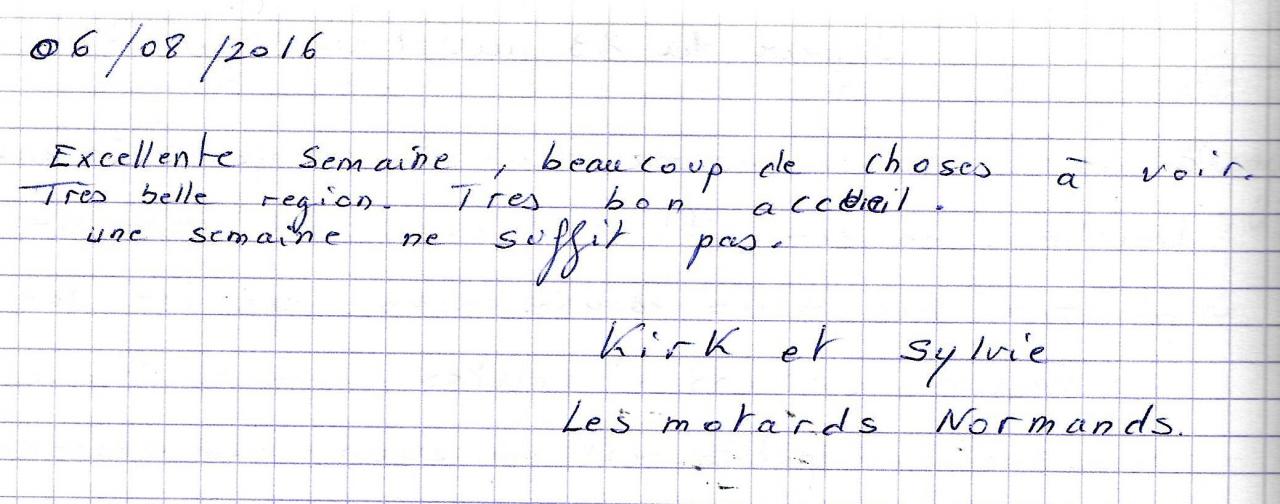 06/08/2016
Excellente semaine, beaucoup de choses à voir.
Tres belle region. Tres bon accueil.
une semaine ne suffit pas.
Kirk et Sylvie
Les motards Normands.